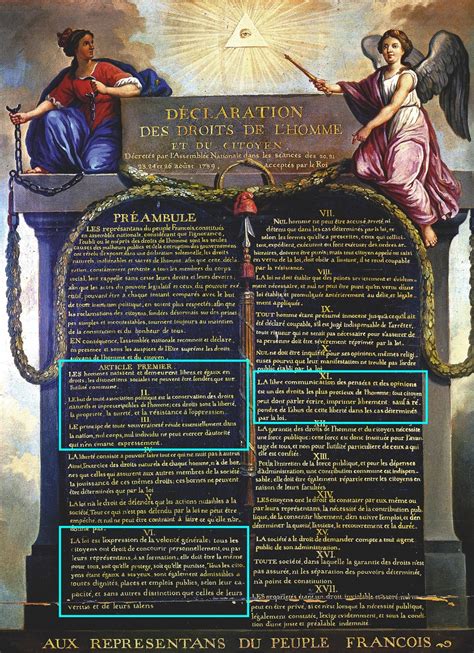 DÉCLARATION
DES DROITS DE L'HOMME
ET DU CITOYEN,
Décretés par l'Assemblée Nationale dans les séances des 20, 21
23, 24 et 26 août 1789, acceptés par le Roi
PRÉAMBULE
LES représentans du peuple Francois, constitués
en assemblée nationale, considérant que l'ignorance,
l'oubli ou le mépris des droits de l'homme sont les seules
causes des malheurs publics et de la corruption des gouvernemens
ont résolu d'exposer dans une déclaration solemnelle, les droits
naturels, inaliénables et sacrés de l'homme; afin que cette décla-
ration, constamment présente à tous les membres du corps
social, leur rappelle sans cesse leurs droits et leurs devoirs;
afin que les actes du pouvoir législatif et ceux du pouvoir exé-
cutif, pouvant être à chaque instant comparés avec le but
de toute institution politique, en soient plus respectés; afin que
les réclamations des citoyens, fondées désormais sur des prin-
cipes simples et incontestables, tournent toujours au maintien
de la constitution et du bonheur de tous.
EN conséquence, l'assemblée nationale reconnoit et déclare,
en présence et sous les auspices de l'Etre suprême les droits
suivans de l'homme et du citoyen.
ARTICLE PREMIER.
LES hommes naissent et demeurent libres et égaux en
droits, les distinctions sociales ne peuvent être fondées que sur
l'utilité commune.
II.
LE but de toute association politique est la conservation des droits
naturels et imprescriptibles de l'homme; ces droits sont la liberté,
la propriété, la sureté, et la résistance à l'oppression.
III.
LE principe de toute souveraineté réside essentiellement dans
la nation, nul corps, nul individu ne peut exercer d'autorité
qui n'en émane expressément.
LA liberté consiste à pouvoir faire tout ce qui ne nuit pas à autrui
Ainsi, l'exercice des droits naturels de chaque homme, n'a de bor-
nes que celles qui assurent aux autres membres de la société
la jouissance de ces mêmes droits; ces bornes ne peuvent
être déterminées que par la loi
V.
LA loi n'a le droit de défendre que les actions nuisibles à la
société. Tout ce qui n'est pas défendu par la loi ne peut être
empêché, et nul ne peut être contraint à faire ce qu'elle n'or-
donne pas.
VI.
LA loi est l'expression de la volonté générale; tous les
citoyens ont droit de concourir personnellement, ou par
leurs représentans, à sa formation; elle doit être la même
pour tous, soit qu'elle protege, soit qu'elle punisse. Tous les
citoyens étant égaux à ses yeux, sont également admissibles à
toutes dignités, places et emplois publics, selon leur ca-
pacité, et sans autres distinction que celles de leurs
vertus et de leurs talens.
VII.
NUL homme ne peut être accusé, arrêté, ni
détenu que dans les cas déterminés par la loi, et
selon les formes qu'elle a prescrites, ceux qui sollici-
tent, expédient, exécutent ou font exécuter des ordres ar-
bitraires, doivent être punis; mais tout citoyen appelé ou saisi
en vertu de la loi, doit obéir à l'instant, il se rend coupable
par la résistance.
VIII.
LA loi ne doit établir que des peines strictement et évidem-
ment nécessaires, et nul ne peut être puni qu'en vertu d'une loi
établie et promulguée antérieurement au délit, et légale-
ment appliquée.
IX.
TOUT homme étant présumé innocent jusqu'à ce qu'il ait
été déclaré coupable, s'il est jugé indispensable de l'arrêter,
toute rigueur qui ne seroit pas nécessaire pour s'assurer de
sa personne doit être sévèrement réprimée par la loi.
X.
NUL ne doit être inquiété pour ses opinions, mêmes religi-
euses pourvu que leur manifestation ne trouble pas l'ordre
public établi par la loi.
XI.
LA libre communication des pensées et des opinions
est un des droits les plus precieux de l'homme; tout citoyen
peut donc parler, écrire, imprimer librement, sauf à ré-
pondre de l'abus de cette liberté dans les cas déterminés
par la loi.
XII.
LA garantie des droits de l'homme et du citoyen nécessite
une force publique; cette force est donc instituée pour l'avan-
tage de tous, et non pour l'utilité particuliere de ceux à qui
elle est confiée.
XIII.
POUR l'entretien de la force publique, et pour les dépenses
d'administration, une contribution commune est indispen-
sable, elle doit être également répartie entre les citoyens en
raison de leurs facultés.
XIV.
LES citoyens ont le droit de constater par eux même ou
par leurs représentans, la nécessité de la contribution pub-
lique, de la consentir librement, d'en suivre l'emploi, et d'en déter-
miner la quotité, l'assiette, le recouvrement et la durée.
XV.
LA société a le droit de demander compte à tout agent
public de son administration.
XVI.
TOUTE société, dans laquelle la garantie des droits n'est
pas assurée, ni la séparation des pouvoirs déterminée,
n'a point de constitution
XVII.
LES propriétés étant un droit inviolable et sacré, nul
ne peut en être privé, si ce n'est lorsque la nécessité publique,
légalement constatée, l'exige évidemment, et sous la condi-
tion d'une juste et préalable indemnité.
AUX REPRESENTANS DU PEUPLE FRANCOIS